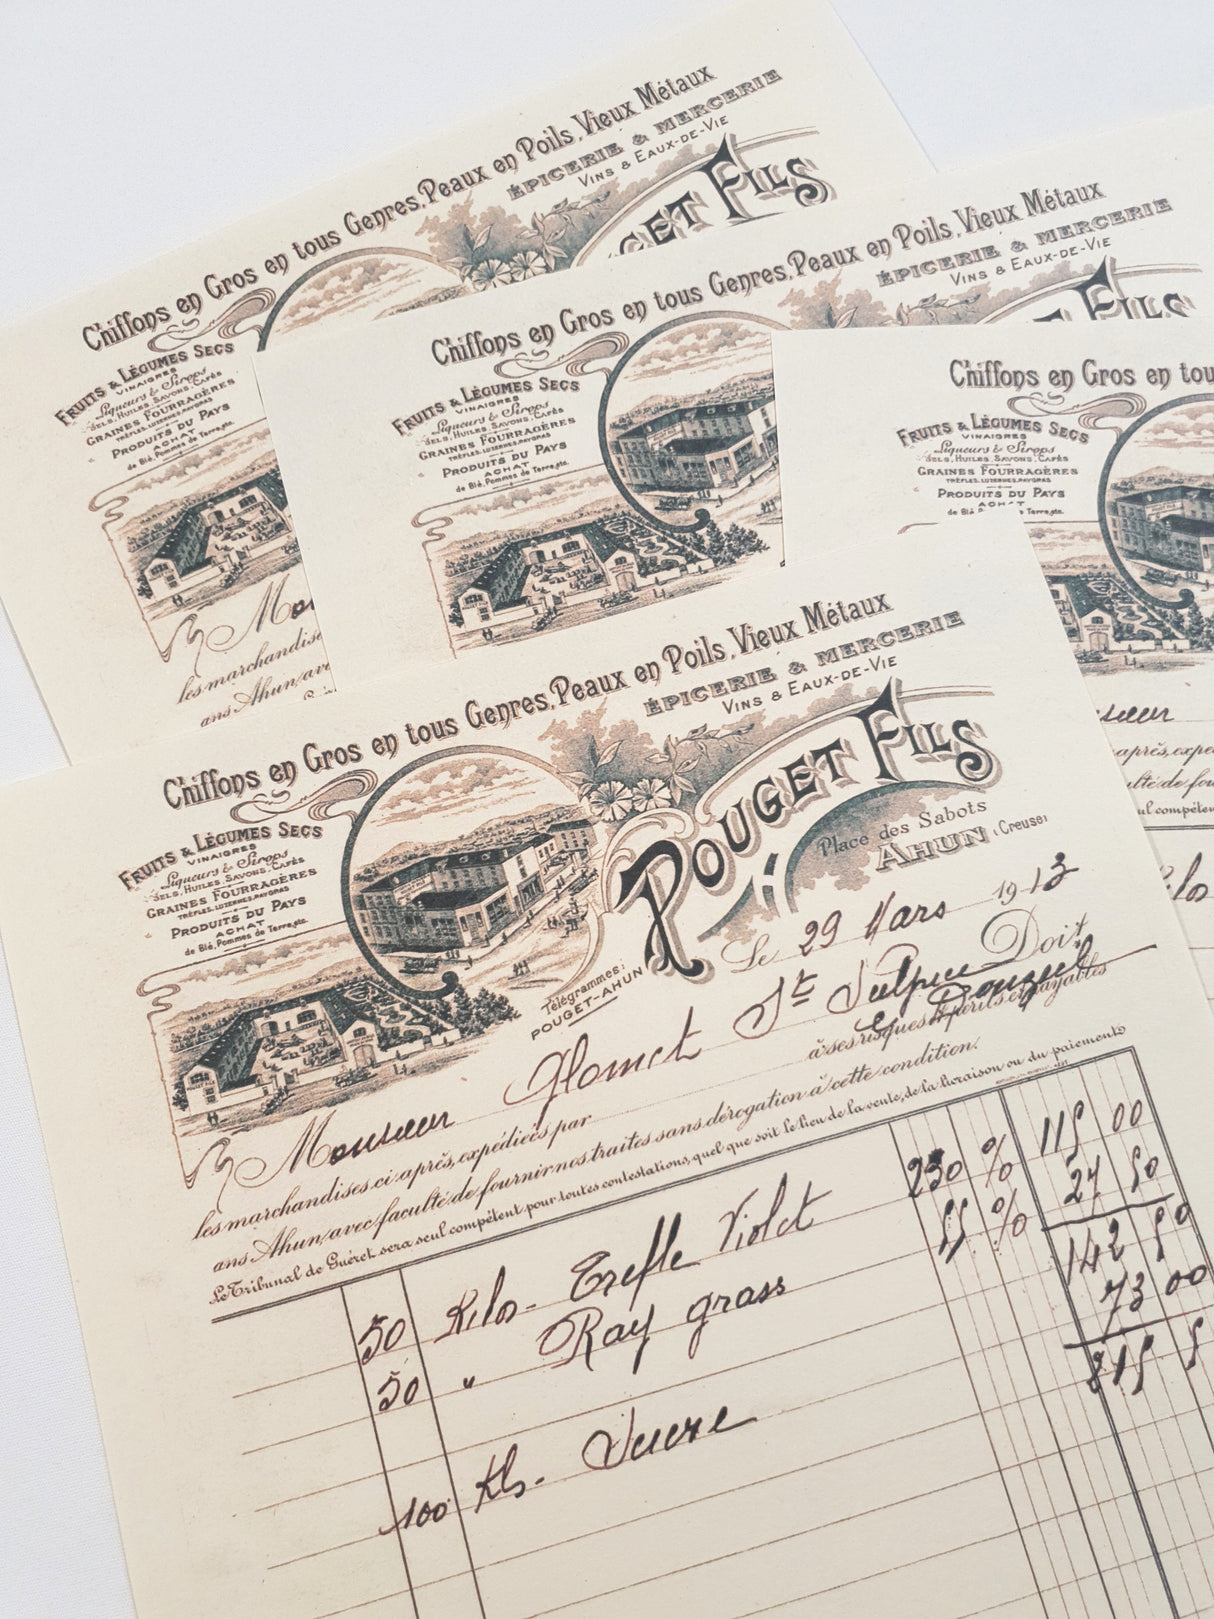 Chiffons en Gros en tous Genres, Peaux en Poils, Vieux Métaux
ÉPICERIE & MERCERIE
VINS & EAUX-DE-VIE
GET FILS
FRUITS & LÉGUMES SECS
VINAIGRES
Liqueurs & Sirops
SELS, HUILES, SAVONS, CAFÉS
GRAINES FOURRAGÈRES
TRÈFLES, LUZERNES, RAYGRAS
PRODUITS DU PAYS
ACHAT
de Blé, Pommes de Terre, etc.
Mon
les marchandise
ans Ahun, av
Chiffons en Gros en tous Genres, Peaux en Poils, Vieux Métaux
ÉPICERIE & MERCERIE
VINS & EAUX-DE-VIE
FILS
FRUITS & LÉGUMES SECS
VINAIGRES
Liqueurs & Sirops
SELS, HUILES, SAVONS, CAFÉS
GRAINES FOURRAGÈRES
TRÈFLES, LUZERNES, RAYGRAS
PRODUITS DU PAYS
ACHAT
de Blé, Pommes de Terre, etc.
Chiffons en Gros en tou
FRUITS & LÉGUMES SECS
VINAIGRES
Liqueurs & Sirops
SELS, HUILES, SAVONS, CAFÉS
GRAINES FOURRAGÈRES
TRÈFLES, LUZERNES, RAYGRAS
PRODUITS DU PAYS
de Blé, Terre, etc.
sieur
après, expé
ulté de fou
ul compéten
Kilo
Chiffons en Gros en tous Genres, Peaux en Poils, Vieux Métaux
ÉPICERIE & MERCERIE
VINS & EAUX-DE-VIE
POUGET FILS
Place des Sabots
AHUN (Creuse)
FRUITS & LÉGUMES SECS
VINAIGRES
Liqueurs & Sirops
SELS, HUILES, SAVONS, CAFÉS
GRAINES FOURRAGÈRES
TRÈFLES, LUZERNES, RAYGRAS
PRODUITS DU PAYS
ACHAT
de Blé, Pommes de Terre, etc.
Télégrammes:
POUGET-AHUN
Le 29 Mars 1913
Doit
Monsieur Glomet St Sulpice
les marchandises ci après, expédiées par à ses risques et périls et payables
ans Ahun, avec faculté de fournir nos traites sans dérogation à cette condition.
Le Tribunal de Guéret sera seul compétent pour toutes contestations, quel que soit le lieu de la vente, de la livraison ou du paiement
50 Kilos - Trefle Violet 230 % 115 00
50 " Ray grass 55 % 27 50
142 50
100 Kls - Sucre 73 00
215 5